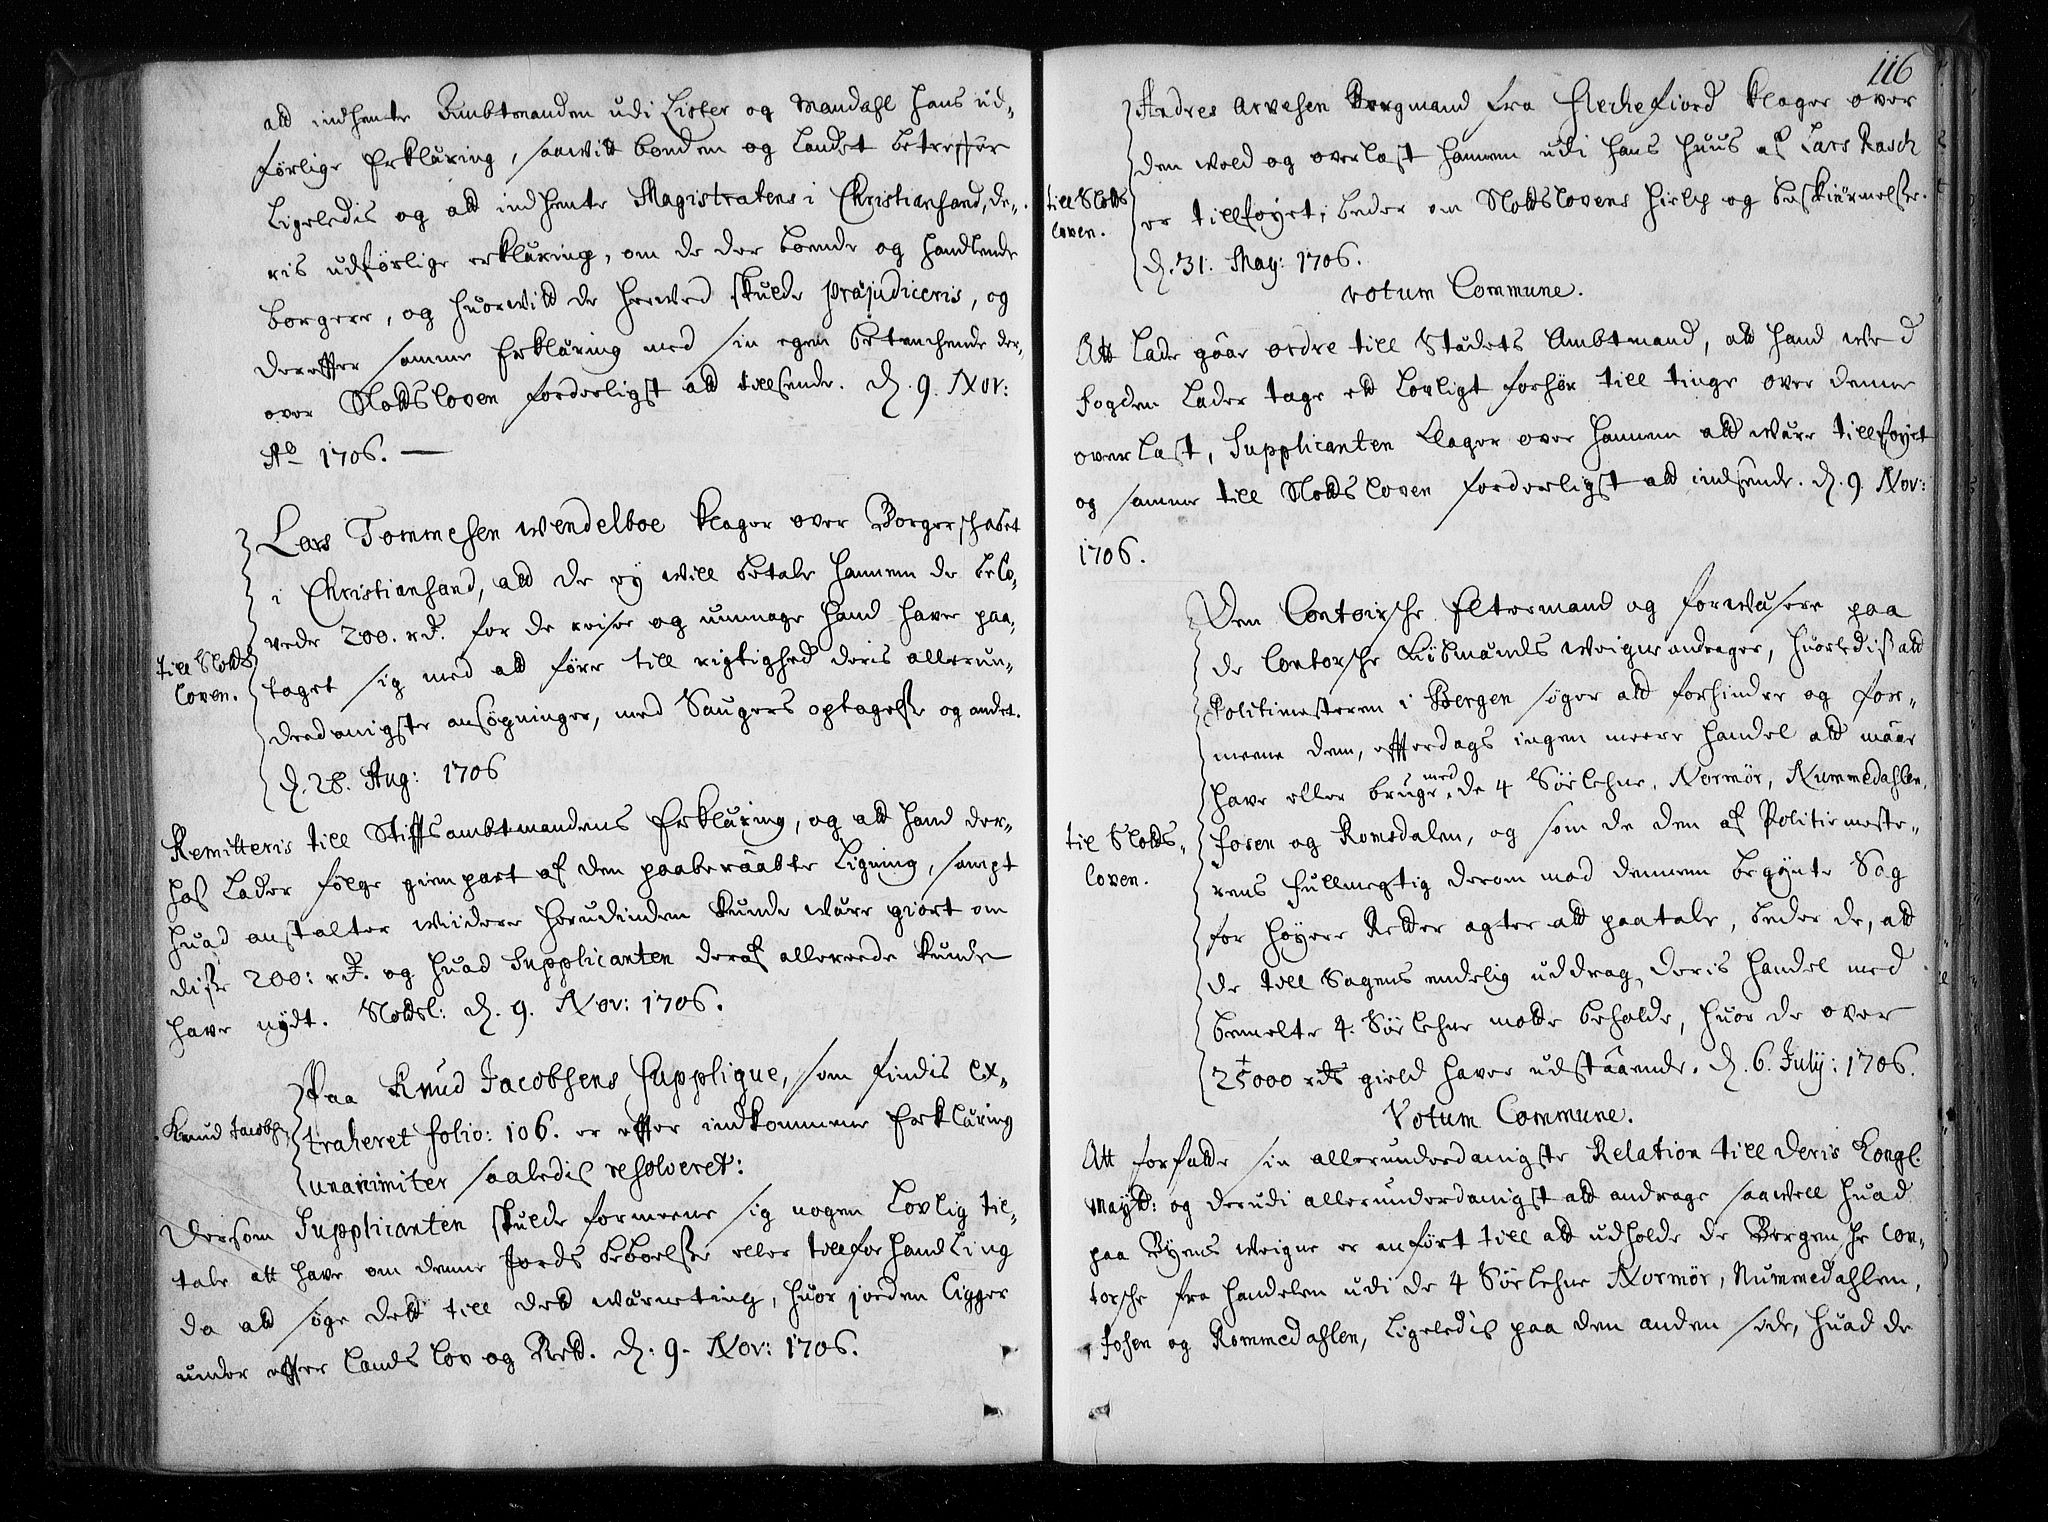 att indhente Ambtmanden udi Lister og Mandahl hans ud-
førlige Erklæring, saawitt bonden og Landet betreffer
Ligeledis og att indhente Magistratens i Christiansand, de-
ris udførlige erklæring, om de der boende og handlende
borgere, og huorwitt de herved skulde præjudiceris, og
derefter samme Erklæring med sin egen betenchende der-
over Slottsloven forderligst att tilsende. d. 9. Nov:
Ao 1706. —
Lars Tommesen Wendelboe klager over Borgerschabet
i Christiansand, att de ey will betale hannem de belo-
vede 200. rd. for de reiser og umage hand haver paa-
taget sig med att føre till rigtighed deris allerun-
till Slotts
loven.
derdanigste ansøgninger, med Saugers optagelse og andet.
d. 28. Aug: 1706
Remitteris till Stiftsambtmandens Erklæring, og att hand der-
hos lader følge gienpart af den paaberaabte Ligning, sampt
huad anstalter wiidere herudinden kunde wære giort om
disse 200: rd. og huad Supplicanten deraf allereede kunde
have nydt. Slottsl: d. 9. Nov: 1706.
Paa Knud Jacobsens Supplique, som findis ex-
Knud Jacobs:
traheret folio: 106. er efter indkommene Erklæring
unanimiter saaledis resolveret:
Dersom Supplicanten skulde formeene sig nogen Lovlig til-
tale att have om denne Jords beboelse eller tillforhandling
da att søge dett till dett wærneting, huor jorden ligger
under efter Lands Lov og Rett. d. 9. Nov: 1706.
116
Andres Arvesen Borgmand fra Fleckefiord klager over
den wold og overlast hannem udi hans huus af Lars Rasch
till Slotts
loven.
er tillføyet; beder om Slottslovens hielp og beskiermelse.
d. 31. May: 1706.
Votum Commune.
Att lade gaae ordre till Stædets Ambtmand, att hand wed
fogden lader tage ett Lovligt forhør till tinge over denne
overlast, Supplicanten klager over hannem att være tillføyet
og samme till Slottsloven forderligst att indsende. d. 9 Nov:
1706.
Den Contoirsche Eltermand og forwæsere paa
de Contorsche Kiøbmænds weigne andrager, huorledis att
Politimesteren i Bergen søger att forhindre og for-
meene dem, effterdags ingen meere handel att maae
have eller bruge med de 4 Sørlehne, Normør, Nummedahlen,
til Slotts-
loven.
fosen og Romsdalen, og som de den af Politiemeste-
rens fullmegtig derom mod dennem begynte Sag
for høyere Retter agter att paatale, beder de, att
de till Sagens endelig uddrag deris handel med
bemelte 4. Sørlehne motte beholde, huor de over
25000 rds gield haver udstaaende. d. 6. July: 1706.
Votum Commune.
Att forfatte sin allerunderdanigste Relation till deris Kongl.
Maytt: og derudi allerunderdanigst att andrage saavell huad
paa Byens weigne er anført till att udholde de Bergensche Con-
torsche fra handelen udi de 4 Sørlehne Normør, Nummedahlen,
Fosen og Rommsdahlen, ligeledis paa den anden side, huad de